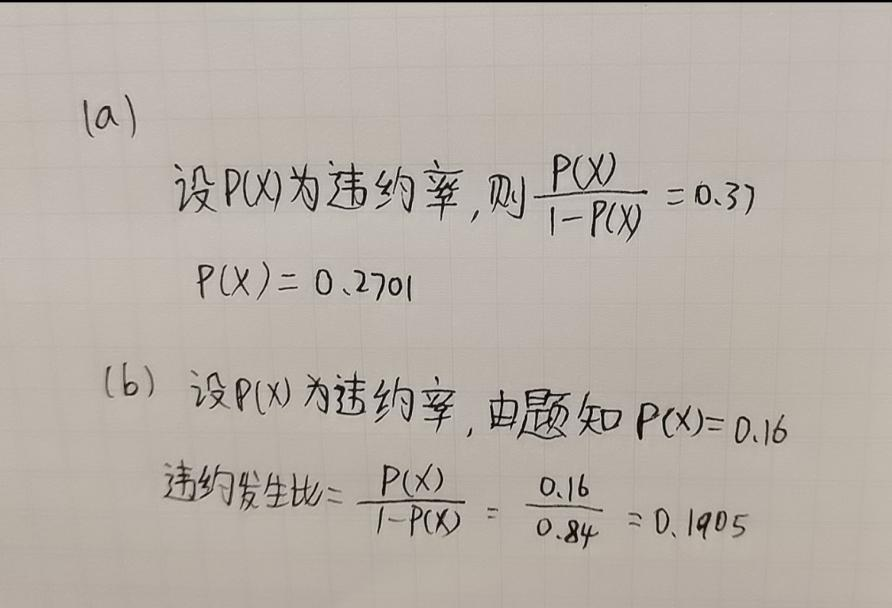 (a)
设P(X)为违约率,则 P(X)/(1-P(X)) = 0.37
P(X) = 0.2701
(b) 设P(X)为违约率,由题知 P(X)=0.16
违约发生比= P(X)/(1-P(X)) = 0.16/0.84 = 0.1905